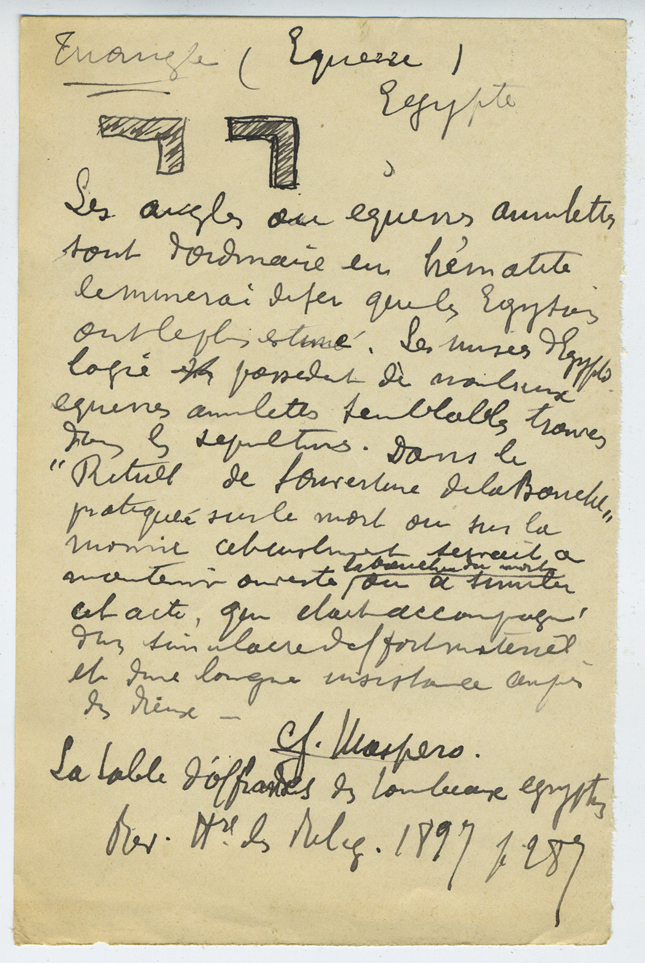 Triangle ( Equerre )
Egypte
Les angles ou équerres amulettes
sont d'ordinaire en hématite
le minerai de fer que les Egyptiens
ont le plus estimé. Les musées d'Egypto
logie possèdent de nombreux
equerres amulettes semblables trouvées
dans les sépultures. Dans le
"Rituel de l'ouverture de la Bouche"
pratiquée sur le mort ou sur la
momie cet instrument servait a
maintenir ouverte la bouche du mort ou à simuler
cet acte, qui était accompagné
d'un simulacre d'effort matériel
et d'une longue insistance auprès
des dieux —
cf. Maspero.
La table d'offrandes des tombeaux egyptiens
Rev. Hre des Relig. 1897 p. 287